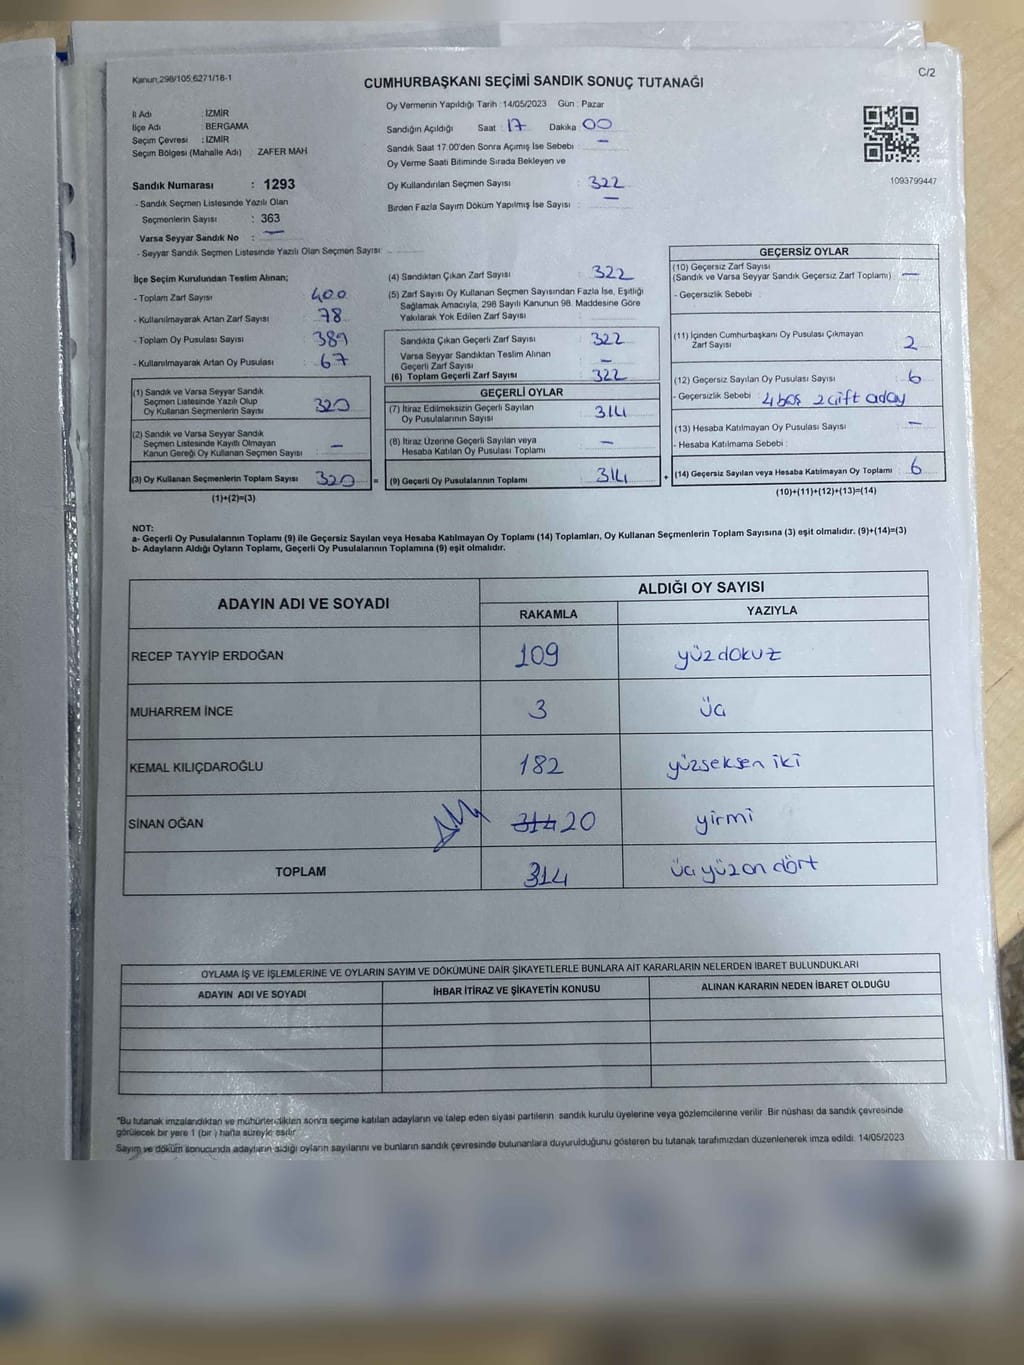 Kanun 298/105,6271/18-1
C/2
CUMHURBAŞKANI SEÇİMİ SANDIK SONUÇ TUTANAĞI
İl Adı : İZMİR
İlçe Adı : BERGAMA
Seçim Çevresi : İZMİR
Seçim Bölgesi (Mahalle Adı) ZAFER MAH
Sandık Numarası : 1293
- Sandık Seçmen Listesinde Yazılı Olan
Seçmenlerin Sayısı : 363
Varsa Seyyar Sandık No : —
- Seyyar Sandık Seçmen Listesinde Yazılı Olan Seçmen Sayısı
Oy Vermenin Yapıldığı Tarih : 14/05/2023 Gün : Pazar
Sandığın Açıldığı Saat : 17 Dakika 00
Sandık Saat 17:00'den Sonra Açılmış İse Sebebi : —
Oy Verme Saati Bitiminde Sırada Bekleyen ve
Oy Kullandırılan Seçmen Sayısı : 322
Birden Fazla Sayım Döküm Yapılmış İse Sayısı : —
1093799447
İlçe Seçim Kurulundan Teslim Alınan;
- Toplam Zarf Sayısı 400
- Kullanılmayarak Artan Zarf Sayısı 78
- Toplam Oy Pusulası Sayısı 389
- Kullanılmayarak Artan Oy Pusulası 67
(1) Sandık ve Varsa Seyyar Sandık
Seçmen Listesinde Yazılı Olup
Oy Kullanan Seçmenlerin Sayısı 320
(2) Sandık ve Varsa Seyyar Sandık
Seçmen Listesinde Kayıtlı Olmayan
Kanun Gereği Oy Kullanan Seçmen Sayısı : —
(3) Oy Kullanan Seçmenlerin Toplam Sayısı 320 =
(1)+(2)=(3)
(4) Sandıktan Çıkan Zarf Sayısı : 322
(5) Zarf Sayısı Oy Kullanan Seçmen Sayısından Fazla İse, Eşitliği
Sağlamak Amacıyla, 298 Sayılı Kanunun 98. Maddesine Göre
Yakılarak Yok Edilen Zarf Sayısı
Sandıkta Çıkan Geçerli Zarf Sayısı : 322
Varsa Seyyar Sandıktan Teslim Alınan
Geçerli Zarf Sayısı : —
(6) Toplam Geçerli Zarf Sayısı : 322
GEÇERLİ OYLAR
(7) İtiraz Edilmeksizin Geçerli Sayılan
Oy Pusulalarının Sayısı : 314
(8) İtiraz Üzerine Geçerli Sayılan veya
Hesaba Katılan Oy Pusulası Toplamı : —
(9) Geçerli Oy Pusulalarının Toplamı : 314 +
GEÇERSİZ OYLAR
(10) Geçersiz Zarf Sayısı
(Sandık ve Varsa Seyyar Sandık Geçersiz Zarf Toplamı) —
- Geçersizlik Sebebi :
(11) İçinden Cumhurbaşkanı Oy Pusulası Çıkmayan
Zarf Sayısı 2
(12) Geçersiz Sayılan Oy Pusulası Sayısı 6
- Geçersizlik Sebebi : 4 boş 2 çift aday
(13) Hesaba Katılmayan Oy Pusulası Sayısı —
- Hesaba Katılmama Sebebi :
(14) Geçersiz Sayılan veya Hesaba Katılmayan Oy Toplamı : 6
(10)+(11)+(12)+(13)=(14)
NOT:
a- Geçerli Oy Pusulalarının Toplamı (9) ile Geçersiz Sayılan veya Hesaba Katılmayan Oy Toplamı (14) Toplamları, Oy Kullanan Seçmenlerin Toplam Sayısına (3) eşit olmalıdır. (9)+(14)=(3)
b- Adayların Aldığı Oyların Toplamı, Geçerli Oy Pusulalarının Toplamına (9) eşit olmalıdır.
ADAYIN ADI VE SOYADI ALDIĞI OY SAYISI
RAKAMLA YAZIYLA
RECEP TAYYİP ERDOĞAN 109 yüzdokuz
MUHARREM İNCE 3 üç
KEMAL KILIÇDAROĞLU 182 yüzseksen iki
SİNAN OĞAN 314 20 yirmi
TOPLAM 314 üç yüz on dört
OYLAMA İŞ VE İŞLEMLERİNE VE OYLARIN SAYIM VE DÖKÜMÜNE DAİR ŞİKAYETLERLE BUNLARA AİT KARARLARIN NELERDEN İBARET BULUNDUKLARI
ADAYIN ADI VE SOYADI İHBAR İTİRAZ VE ŞİKAYETİN KONUSU ALINAN KARARIN NEDEN İBARET OLDUĞU
*Bu tutanak imzalandıktan ve mühürlendikten sonra seçime katılan adayların ve talep eden siyasi partilerin sandık kurulu üyelerine veya gözlemcilerine verilir. Bir nüshası da sandık çevresinde
görülecek bir yere 1 (bir) hafta süreyle asılır
Sayım ve döküm sonucunda adayların aldığı oyların sayılarını ve bunların sandık çevresinde bulunanlara duyurulduğunu gösteren bu tutanak tarafımızdan düzenlenerek imza edildi. 14/05/2023